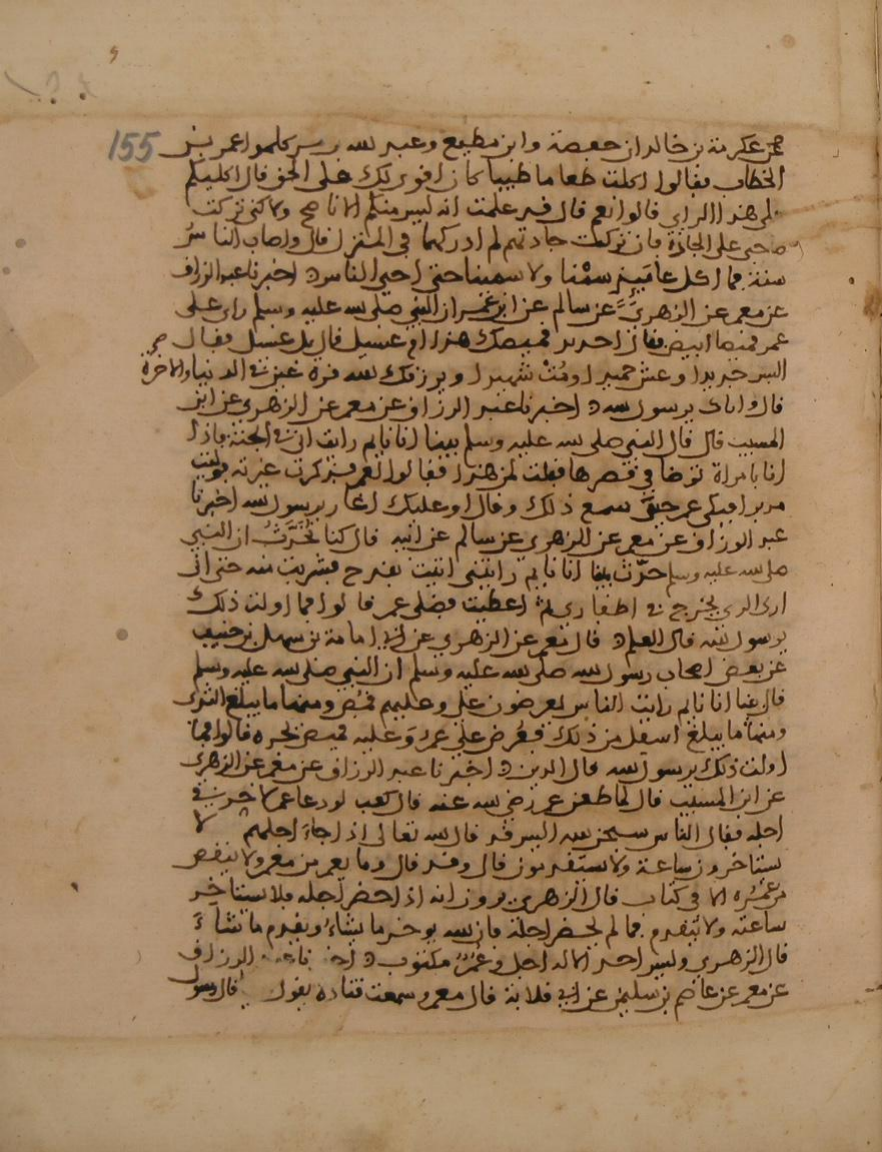 155
عن عكرمة بن خالد ان حفصة وابن مطيع وعبد الله بن عمر كلموا عمر بن
الخطاب فقالوا لو اكلت طعاما طيبا كان اقوى لك على الحق قال اكلكم
على هذا الراي قالوا نعم قال قد علمت انه ليس منكم الا ناصح ولاكني تركت
صاحبي على الجادة فان تركت جادتهم لم ادركهما في المنزل قال واصاب الناس
سنة فما اكل عامئذ سمنا ولا سمينا حتى احيي الناس اخبرنا عبد الرزاق
عن معمر عن الزهري عن سالم عن ابن عمر ان النبي صلى الله عليه وسلم راى على
عمر قميصا ابيض فقال اجديد قميصك هذا ام غسيل قال بل غسيل فقال
البس جديدا وعش حميدا ومت شهيدا ويرزقك الله قرة عين في الدنيا والاخرة
قال واياك يرسول الله اخبرنا عبد الرزاق عن معمر عن الزهري عن ابن
المسيب قال قال النبي صلى الله عليه وسلم بينا انا نايم رايت اني في الجنة فاذا
انا بامراة توضا في قصرها فقلت لمن هذا فقالوا لعمر فذكرت غيرته فوليت
مدبرا فبكى عمر حين سمع ذلك وقال او عليك اغار يرسول الله اخبرنا
عبد الرزاق عن معمر عن الزهري عن سالم عن ابيه قال كنا نحدث ان النبي
صلى الله عليه وسلم حدث بينا انا نايم رايتني اتيت بقدح فشربت منه حتى اني
ارى الري يخرج في اظفاري ثم اعطيت فضلي عمر قالوا فما اولت ذلك
يرسول الله قال العلم قال معمر عن الزهري عن ابي امامة بن سهل بن حنيف
عن بعض اصحاب رسول الله صلى الله عليه وسلم ان النبي صلى الله عليه وسلم
قال بينا انا نايم رايت الناس يعرضون علي وعليهم قمص ومنها ما يبلغ الثدي
ومنها ما يبلغ اسفل من ذلك فعرض علي عمر وعليه قميص يجره قالوا فما
اولت ذلك يرسول الله قال الدين اخبرنا عبد الرزاق عن معمر عن الزهري
عن ابن المسيب قال لما طعن عمر رضي الله عنه قال كعب لو دعا عمر لاخر في
اجله فقال الناس سبحن الله اليس قد قال الله تعالى اذا جاء اجلهم لا
يستاخرون ساعة ولا يستقدمون قال وقد قال وما يعمر من معمر ولا ينقص
من عمره الا في كتاب قال الزهري يرون انه اذا حضر اجله فلا يستاخر
ساعة ولا يتقدم فما لم يحضر اجله فان الله يوخر ما يشاء ويقدم ما شاء
قال الزهري وليس احد الا له اجل وعمر مكتوب عبد الرزاق
عن معمر عن عاصم بن سليمن عن ابي قلابة قال معمر وسمعت قتادة يقول قال رسول